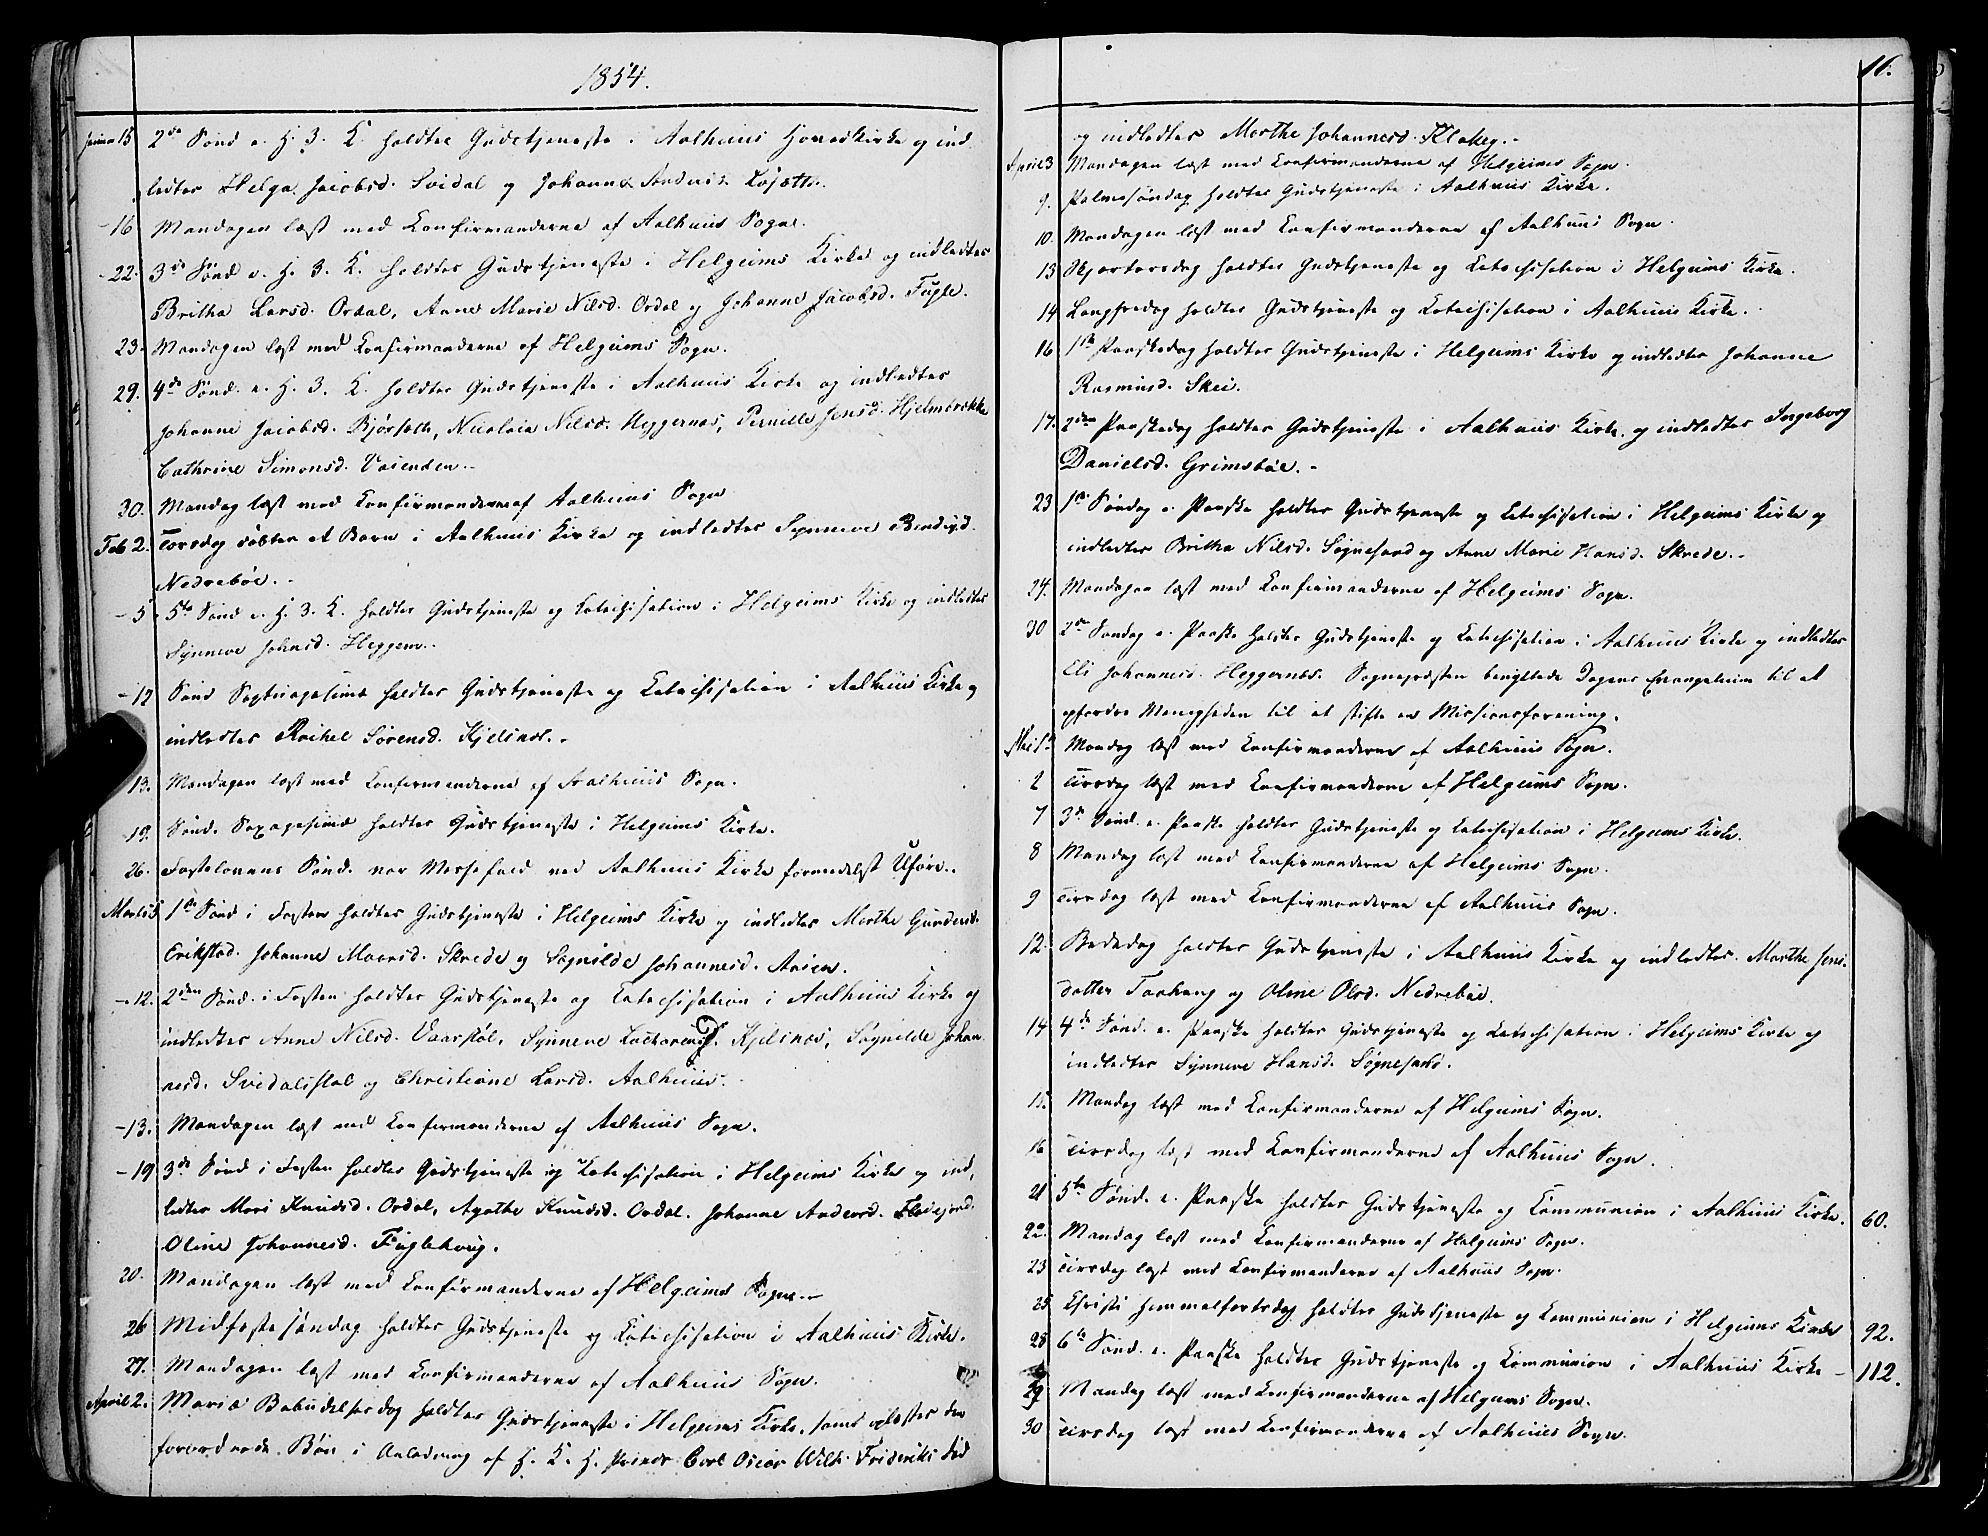 1854.
Januar 15 2de Sønd. e. H. 3. K. holdtes Gudstjeneste i Aalhuus Hovedkirke og ind
ledtes Helga Jacobsd. Svidal og Johanne Anders.
-16 Mandagen læst med Konfirmanderne af Aalhuus Sogn.
-22. 3de Sønd. e. H. 3. K. holdtes Gudstjeneste i Helgeims Kirke og indledtes
Britha Larsd. Ordal, Anne Marie Nilsd. Ordal og Johanne Jacobsd. Fugle.
23. Mandagen læst med Konfirmanderne af Helgeims Sogn.
29. 4de Sønd. e. H. 3. K. holdtes Gudstjeneste i Aalhuus Kirke og indledtes
Johanne Jacobsd. Bjørseth, Nicolaia Nilsd. Heggernæs, Pernille Jensd. Hjelmbrække
Cathrine Simonsd. Vasenden.
30. Mandag læst med Konfirmanderne af Aalhuus Sogn
Feb 2. Torsdag døbtes et Barn i Aalhuus Kirke og indledtes Synneve Bendixd.
Nedrebøe.
-5. 5te Sønd. e. H. 3. K. holdtes Gudstjeneste og Katechisation i Helgeims Kirke og indledtes
Synneve Johnsd. Heggem.
-12 Sønd. Septuagesima holdtes Gudstjeneste og Katechisation i Aalhuus Kirke og
indledtes Rachel Sørensd. Kjelsnæs.
13. Mandagen læst med Konfirmanderne af Aalhuus Sogn.
19. Sønd. Sexagesima holdtes Gudstjeneste i Helgeims Kirke.
26. Fastelavns Sønd. var Messefald ved Aalhuus Kirke formedelst Uføre.
Marts 5 1ste Sønd. i Fasten holdtes Gudstjeneste i Helgeims Kirke og indledtes Marthe Gundersd.
Erikstad. Johanne Monsd. Skrede og Søgnilde Johannesd. Aasen.
-12. 2den Sønd. i Fasten holdtes Gudstjeneste og Katechisation i Aalhuus Kirke og
indledtes Anne Nilsd. Vaarstøl, Synneve Zachariasd. Kjelsnæs, Søgnilde Johan
nesd. Svidalsstøl og Christiane Larsd. Aalhuus.
-13. Mandagen læst med Konfirmanderne af Aalhuus Sogn.
-19 3de Sønd. i Fasten holdtes Gudstjeneste og Katechisation i Helgeims Kirke og ind,
ledtes Mari Knudsd. Ordal, Agathe Knudsd. Ordal. Johanne Andersd.
Oline Johannesd. Fuglehaug.
20. Mandagen læst med Konfirmanderne af Helgeims Sogn.
26 Midfastesøndag holdtes Gudstjeneste og Katechisation i Aalhuus Kirke.
27. Mandagen læst med Konfirmanderne af Aalhuus Sogn.
April 2. Mariæ Bebudelsesdag holdtes Gudstjeneste i Helgeims Kirke, samt oplæstes den
forordnede Bøn i Anledning af H. K. H. Prinds Carl Oscar Wilh. Frideriks Død
11.
og indledtes Marthe Johannesd. Klakeg.
April 3 Mandagen læst med Konfirmanderne af Helgeims Sogn.
9. Palmesøndag holdtes Gudstjeneste i Aalhuus Kirke.
10. Mandagen læst med Konfirmanderne af Aalhuus Sogn.
13 Skjærtorsdag holdtes Gudstjeneste og Katechisation i Helgeims Kirke.
14 Langfredag holdtes Gudstjeneste og Katechisation i Aalhuus Kirke.
16 1ste Paaskedag holdtes Gudstjeneste i Helgeims Kirke og indledtes Johanne
Rasmusd. Skei.
17. 2den Paaskedag holdtes Gudstjeneste i Aalhuus Kirke og indledtes Ingeborg
Danielsd. Grimsbøe.
23 1ste Søndag e. Paaske holdtes Gudstjeneste og Katechisation i Helgeims Kirke og
indledtes Britha Nilsd. Søgnesand og Anne Marie Hansd. Skrede.
24. Mandagen læst med Konfirmanderne af Helgeims Sogn.
30 2den Søndag e. Paaske holdtes Gudstjeneste og Katechisation i Aalhuus Kirke og indledtes
Eli Johannesd. Heggernæs. Sognepræsten benyttede Dagens Evangelium til at
opfordre Menigheden til at stifte en Missionsforening.
Mai 1ste Mandag læst med Konfirmanderne af Aalhuus Sogn.
2 Tirsdag læst med Konfirmanderne af Helgeims Sogn.
7 3de Sønd. e. Paaske holdtes Gudstjeneste og Katechisation i Helgeims Kirke.
8 Mandag læst med Konfirmanderne af Helgeims Sogn.
9 Tirsdag læst med Konfirmanderne af Aalhuus Sogn.
12. Bededag holdtes Gudstjeneste i Aalhuus Kirke og indledtes Marthe Jens-
datter Taahaug og Oline Olsd. Nedrebøe.
14 4de Sønd. e. Paaske holdtes Gudstjeneste og Katechisation i Helgeims Kirke og
indledtes Synneve Hansd. Søgnesand.
15. Mandag læst med Konfirmanderne af Helgeims Sogn.
16 Tirsdag læst med Konfirmanderne af Aalhuus Sogn.
21 5te Sønd. e. Paaske holdtes Gudstjeneste og Communion i Aalhuus Kirke. 60.
22. Mandag læst med Konfirmanderne af Helgeims Sogn.
23 Tirsdag læst med Konfirmanderne af Aalhuus Sogn.
25 Christi Himmelfartsdag holdtes Gudstjeneste og Communion i Helgeims Kirke 92.
28 6te Sønd. e. Paaske holdtes Gudstjeneste og Communion i Aalhuus Kirke - 112.
29 Mandag læst med Konfirmanderne af Helgeims Sogn.
30 Tirsdag læst med Konfirmanderne af Aalhuus Sogn.